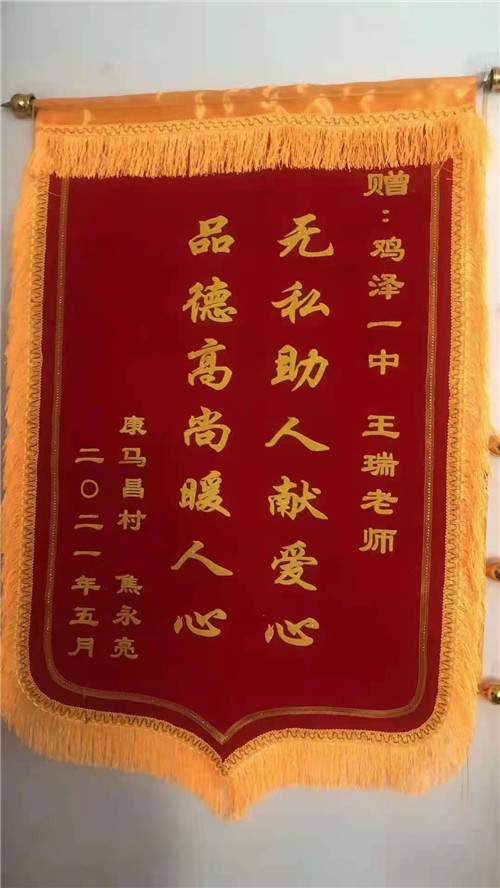 赠：鸡泽一中 王瑞老师
无私助人献爱心
品德高尚暖人心
康马昌村 焦永亮
二〇二一年五月